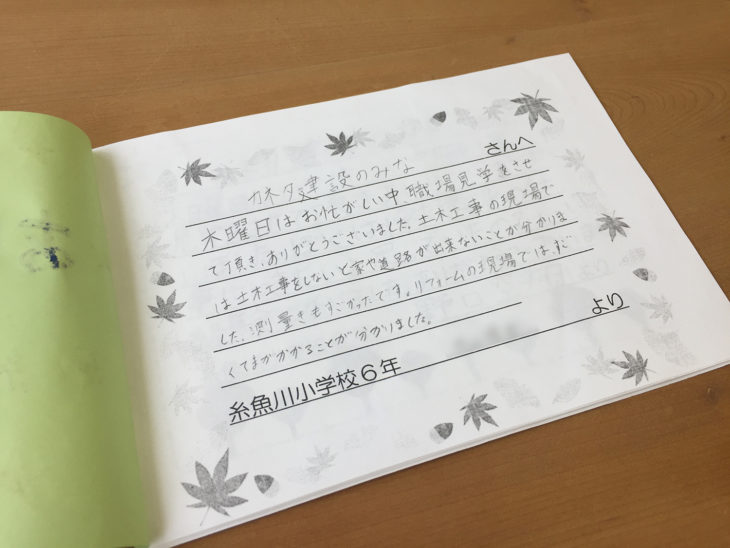 カネタ建設のみな さんへ
木曜日はお忙がしい中、職場見学をさせ
て頂き、ありがとうございました。土木工事の現場で
は土木工事をしないと家や道路が出来ないことが分かりま
した。測量きもすごかったです。リフォームの現場では、だ
くてまがかかることが分かりました。
糸魚川小学校6年 より